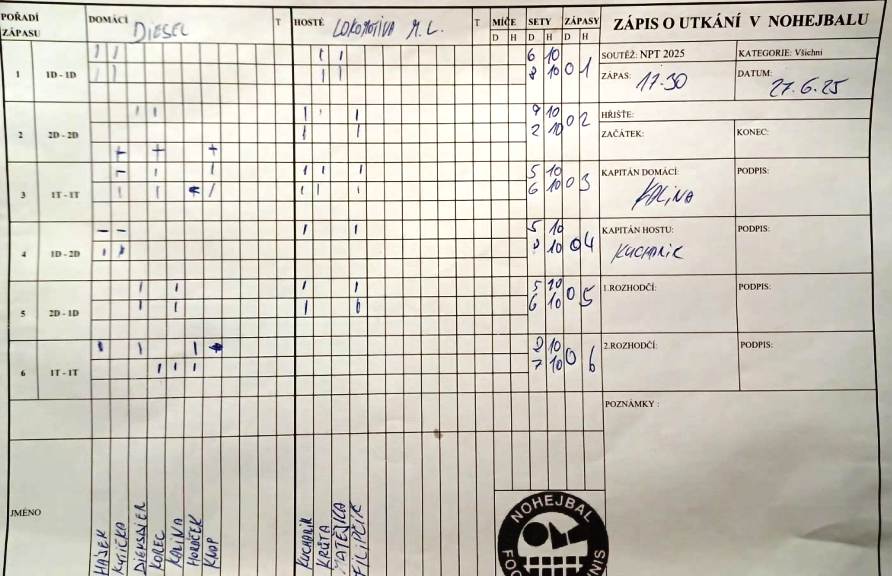 POŘADÍ ZÁPASU DOMÁCÍ DIESEL T HOSTÉ LOKOMOTIVA M. L. T MÍČE SETY ZÁPASY
D H D H D H
ZÁPIS O UTKÁNÍ V NOHEJBALU
SOUTĚŽ: NPT 2025 KATEGORIE: Všichni
ZÁPAS: 17.30 DATUM: 27.6.25
1 1D - 1D 6 10
8 10 0 1
HŘIŠTĚ:
ZAČÁTEK: KONEC:
2 2D - 2D 9 10
2 10 0 2
KAPITÁN DOMÁCÍ: KALINA PODPIS:
3 1T - 1T 5 10
6 10 0 3
KAPITÁN HOSTU: KUCHARIK PODPIS:
4 1D - 2D 5 10
8 10 0 4
1.ROZHODČÍ: PODPIS:
5 2D - 1D 5 10
6 10 0 5
2.ROZHODČÍ: PODPIS:
6 1T - 1T 10
7 10 0 6
POZNÁMKY :
JMÉNO
HÁJEK
KYTIČKA
KOREC
KALINA
HORÁČEK
KNOP
KUCHARIK
KRŮTA
MATEJICA
FILIPČÍK
NOHEJBAL